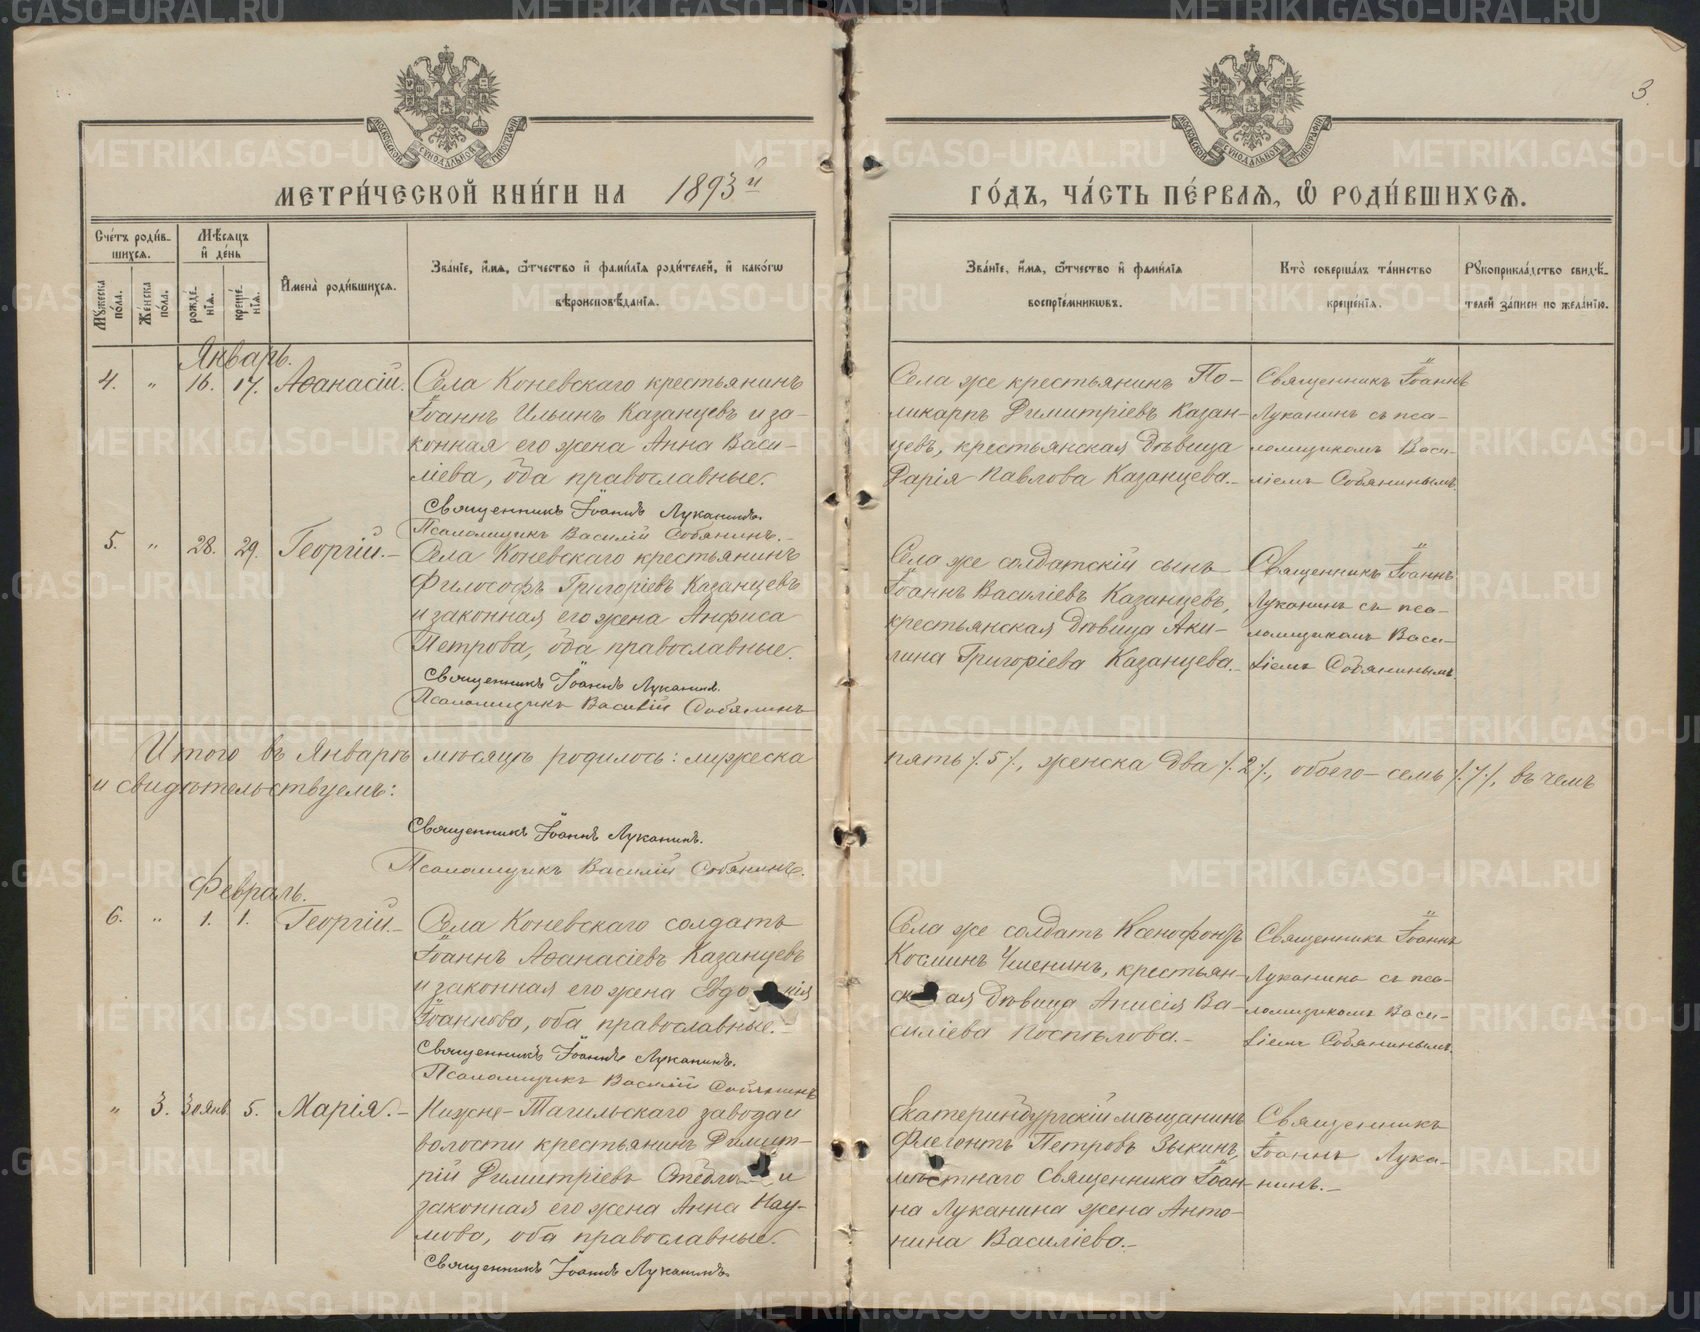 3.
МОСКОВСКОЙ СѴНОДАЛЬНОЙ ТИПОГРАФІИ
МОСКОВСКОЙ СѴНОДАЛЬНОЙ ТИПОГРАФІИ
МЕТРИ́ЧЕСКОЙ КНИ́ГИ НА 1893й
ГО́ДЪ, ЧА́СТЬ ПЕ́РВАѦ, Ѡ҆ РОДИ́ВШИХСѦ.
Сче́тъ роди́в-
шихсѧ.
Мꙋ́жеска по́ла.
Же́нска по́ла.
Мѣ́сѧцъ
и҆ де́нь
рожде́-нїѧ.
креще́-нїѧ.
И҆мена̀ роди́вшихсѧ.
Зва́нїе, и҆́мѧ, ѻ҆́тчество и҆ фами́лїѧ роди́телей, и҆ како́гѡ
вѣроисповѣ́данїѧ.
Зва́нїе, и҆́мѧ, ѻ҆́тчество и҆ фами́лїѧ
воспрїе́мникѡвъ.
Кто̀ соверша́лъ та́инство
креще́нїѧ.
Рꙋкоприкла́дство свидѣ́-
телей за́писи по жела́нїю.
Январь.
4. " 16. 17. Аѳанасій.
Села Коневскаго крестьянинъ
Іоаннъ Ильинъ Казанцевъ и за-
конная его жена Анна Васи-
ліева, оба православные.
Священникъ Іоаннъ Луканинъ.
Псаломщикъ Василій Собянинъ.-
Села же крестьянинъ По-
ликарпъ Димитріевъ Казан-
цевъ, крестьянская дѣвица
Дарія Павлова Казанцева.-
Священникъ Іоаннъ
Луканинъ съ пса-
ломщикомъ Васи-
ліемъ Собянинымъ.
5. " 28. 29. Георгій.-
Села Коневскаго крестьянинъ
Философъ Григоріевъ Казанцевъ
и законная его жена Анфиса
Петрова, оба православные.
Священникъ Іоаннъ Луканинъ.
Псаломщикъ Василій Собянинъ
Села же солдатскій сынъ
Іоаннъ Василіевъ Казанцевъ,
крестьянская дѣвица Аки-
лина Григоріева Казанцева.-
Священникъ Іоаннъ
Луканинъ съ пса-
ломщикомъ Васи-
ліемъ Собянинымъ.
Итого въ Январѣ мѣсяцѣ родилось: мужеска
пять /.5/., женска два /.2/., обоего - семь /.7/., въ чемъ
и свидѣтельствуемъ:
Священникъ Іоаннъ Луканинъ.
Псаломщикъ Василій Собянинъ.
Февраль.
6. " 1. 1. Георгій.-
Села Коневскаго солдатъ
Іоаннъ Аѳанасіевъ Казанцевъ
и законная его жена Евдо кія
Іоаннова, оба православные.-
Священникъ Іоаннъ Луканинъ.
Псаломщикъ Василій Собянинъ
Села же солдатъ Ксенофонтъ
Косминъ, крестьян-
ск ая дѣвица Анисія Ва-
силіева Поспѣлова.-
Священникъ Іоаннъ
Луканинъ съ пса-
ломщикомъ Васи-
ліемъ Собянинымъ.
" 3. 30 Янв. 5. Марія.-
Нижне-Тагильскаго завода и
волости крестьянинъ Димит-
рій Димитріевъ и
законная его жена Анна Нау-
мова, оба православные.
Священникъ Іоаннъ Луканинъ.
Екатеринбургскій мѣщанинъ
Флегонтъ Петровъ Зыкинъ,
мѣстнаго Священника Іоан-
на Луканина жена Анто-
нина Василіева.-
Священникъ
Іоаннъ Лука-
нинъ.-
METRIKI.GASO-URAL.RU